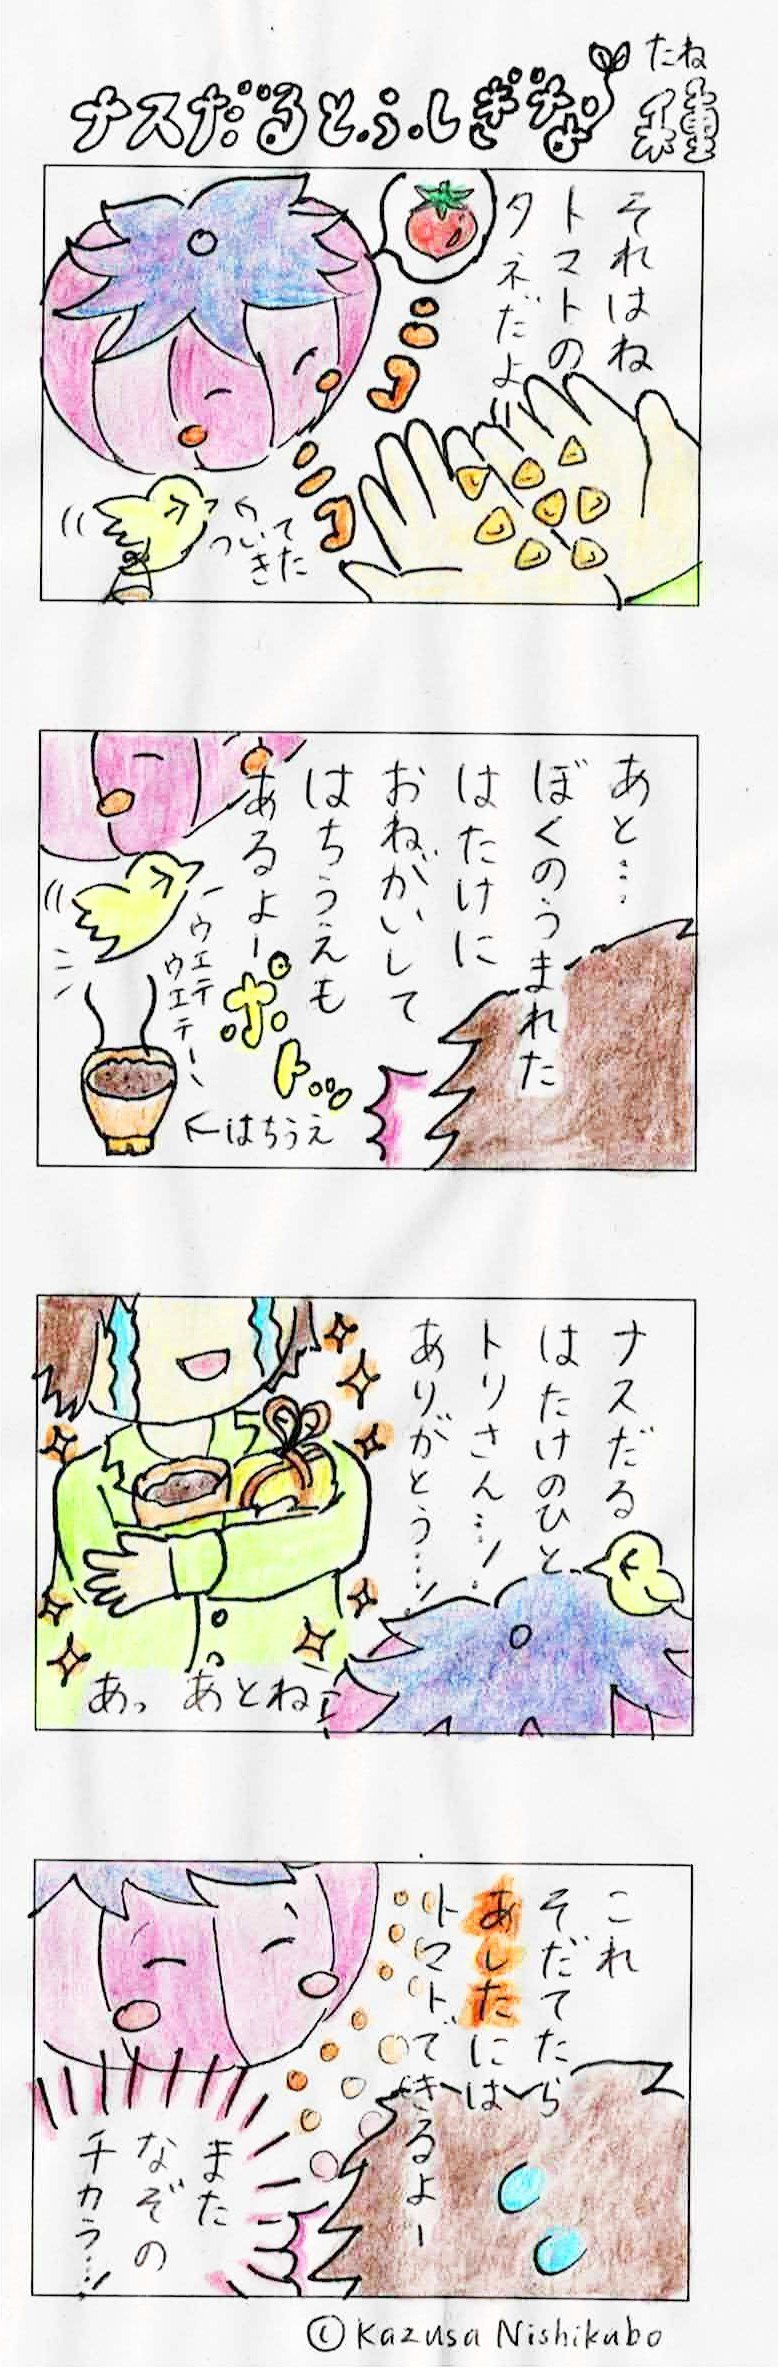 ナスだるとふしぎな種
たね
それはね
トマトの
タネだよ
ついてきた
あと…
ぼくのうまれた
はたけに
おねがいして
はちうえも
あるよー
ウエテ
ウエテー
ポトッ
←はちうえ
ナスだる
はたけのひと
トリさん…!
ありがとう…!
あっ あとね
これ
そだてたら
あしたには
トマトできるよー
また
なぞの
チカラ…!
©Kazusa Nishikubo